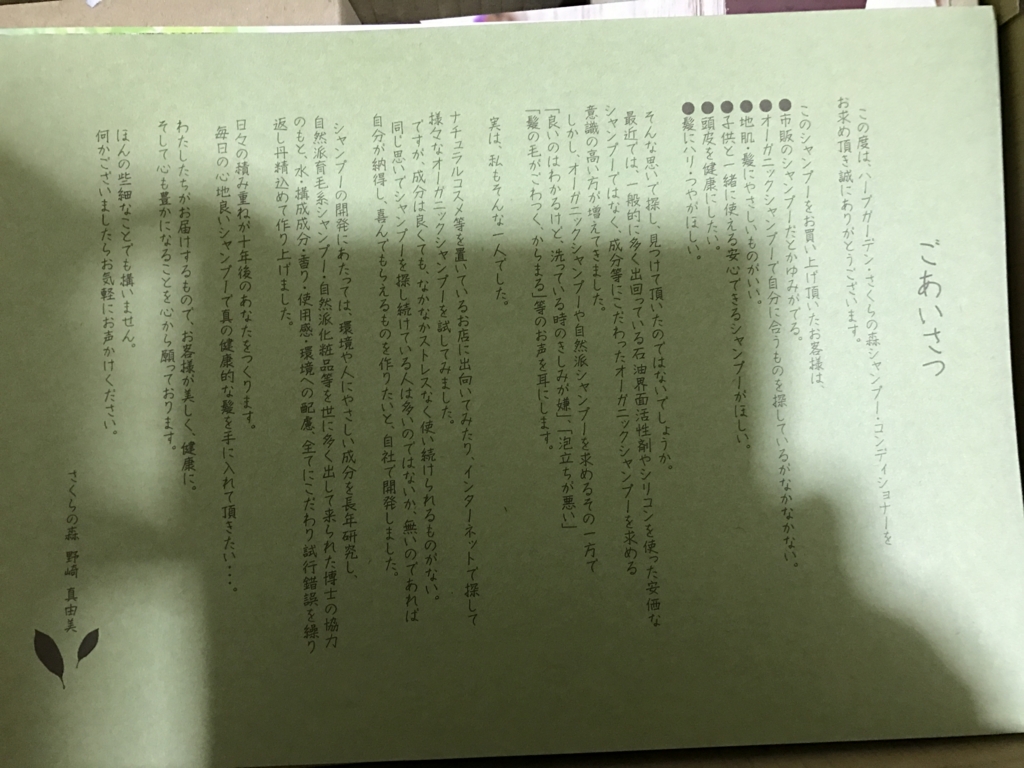 ごあいさつ
この度は、ハーブガーデン・さくらの森シャンプー・コンディショナーを
お求め頂き誠にありがとうございます。
このシャンプーをお買い上げ頂いたお客様は、
●市販のシャンプーだとかゆみがでる。
●オーガニックシャンプーで自分に合うものを探しているがなかなかない。
●地肌・髪にやさしいものがいい。
●子供と一緒に使える安心できるシャンプーがほしい。
●頭皮を健康にしたい。
●髪にハリ・つやがほしい。
そんな思いで探し、見つけて頂いたのではないでしょうか。
最近では、一般的に多く出回っている石油界面活性剤やシリコンを使った安価な
シャンプーではなく、成分等にこだわったオーガニックシャンプーを求める
意識の高い方が増えてきました。
しかし、オーガニックシャンプーや自然派シャンプーを求めるその一方で
「良いのはわかるけど、洗っている時のきしみが嫌」、「泡立ちが悪い」
「髪の毛がごわつく、からまる」等のお声を耳にします。
実は、私もそんな一人でした。
ナチュラルコスメ等を置いているお店に出向いてみたり、インターネットで探して
様々なオーガニックシャンプーを試してみました。
ですが、成分は良くても、なかなかストレスなく使い続けられるものがない。
同じ思いでシャンプーを探し続けている人は多いのではないか、無いのであれば
自分が納得し、喜んでもらえるものを作りたいと、自社で開発しました。
シャンプーの開発にあたっては、環境や人にやさしい成分を長年研究し、
自然派育毛系シャンプー・自然派化粧品等を世に多く出して来られた博士の協力
のもと、水・構成成分・香り・使用感・環境への配慮、全てにこだわり試行錯誤を繰り
返し丹精込めて作り上げました。
日々の積み重ねが十年後のあなたをつくります。
毎日の心地良いシャンプーで真の健康的な髪を手に入れて頂きたい・・・
わたしたちがお届けするもので、お客様が美しく、健康に。
そして心も豊かになることを心から願っております。
ほんの些細なことでも構いません。
何かございましたらお気軽にお声かけください。
さくらの森 野崎 真由美